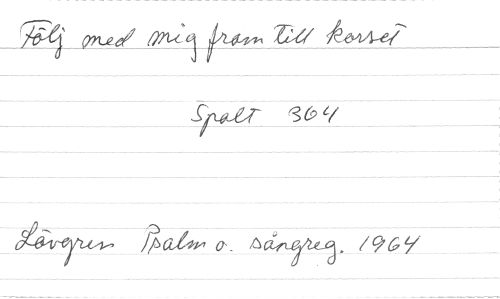 Följ med mig fram till korset
Spalt 304
Lövgren Psalm o. sångreg. 1964